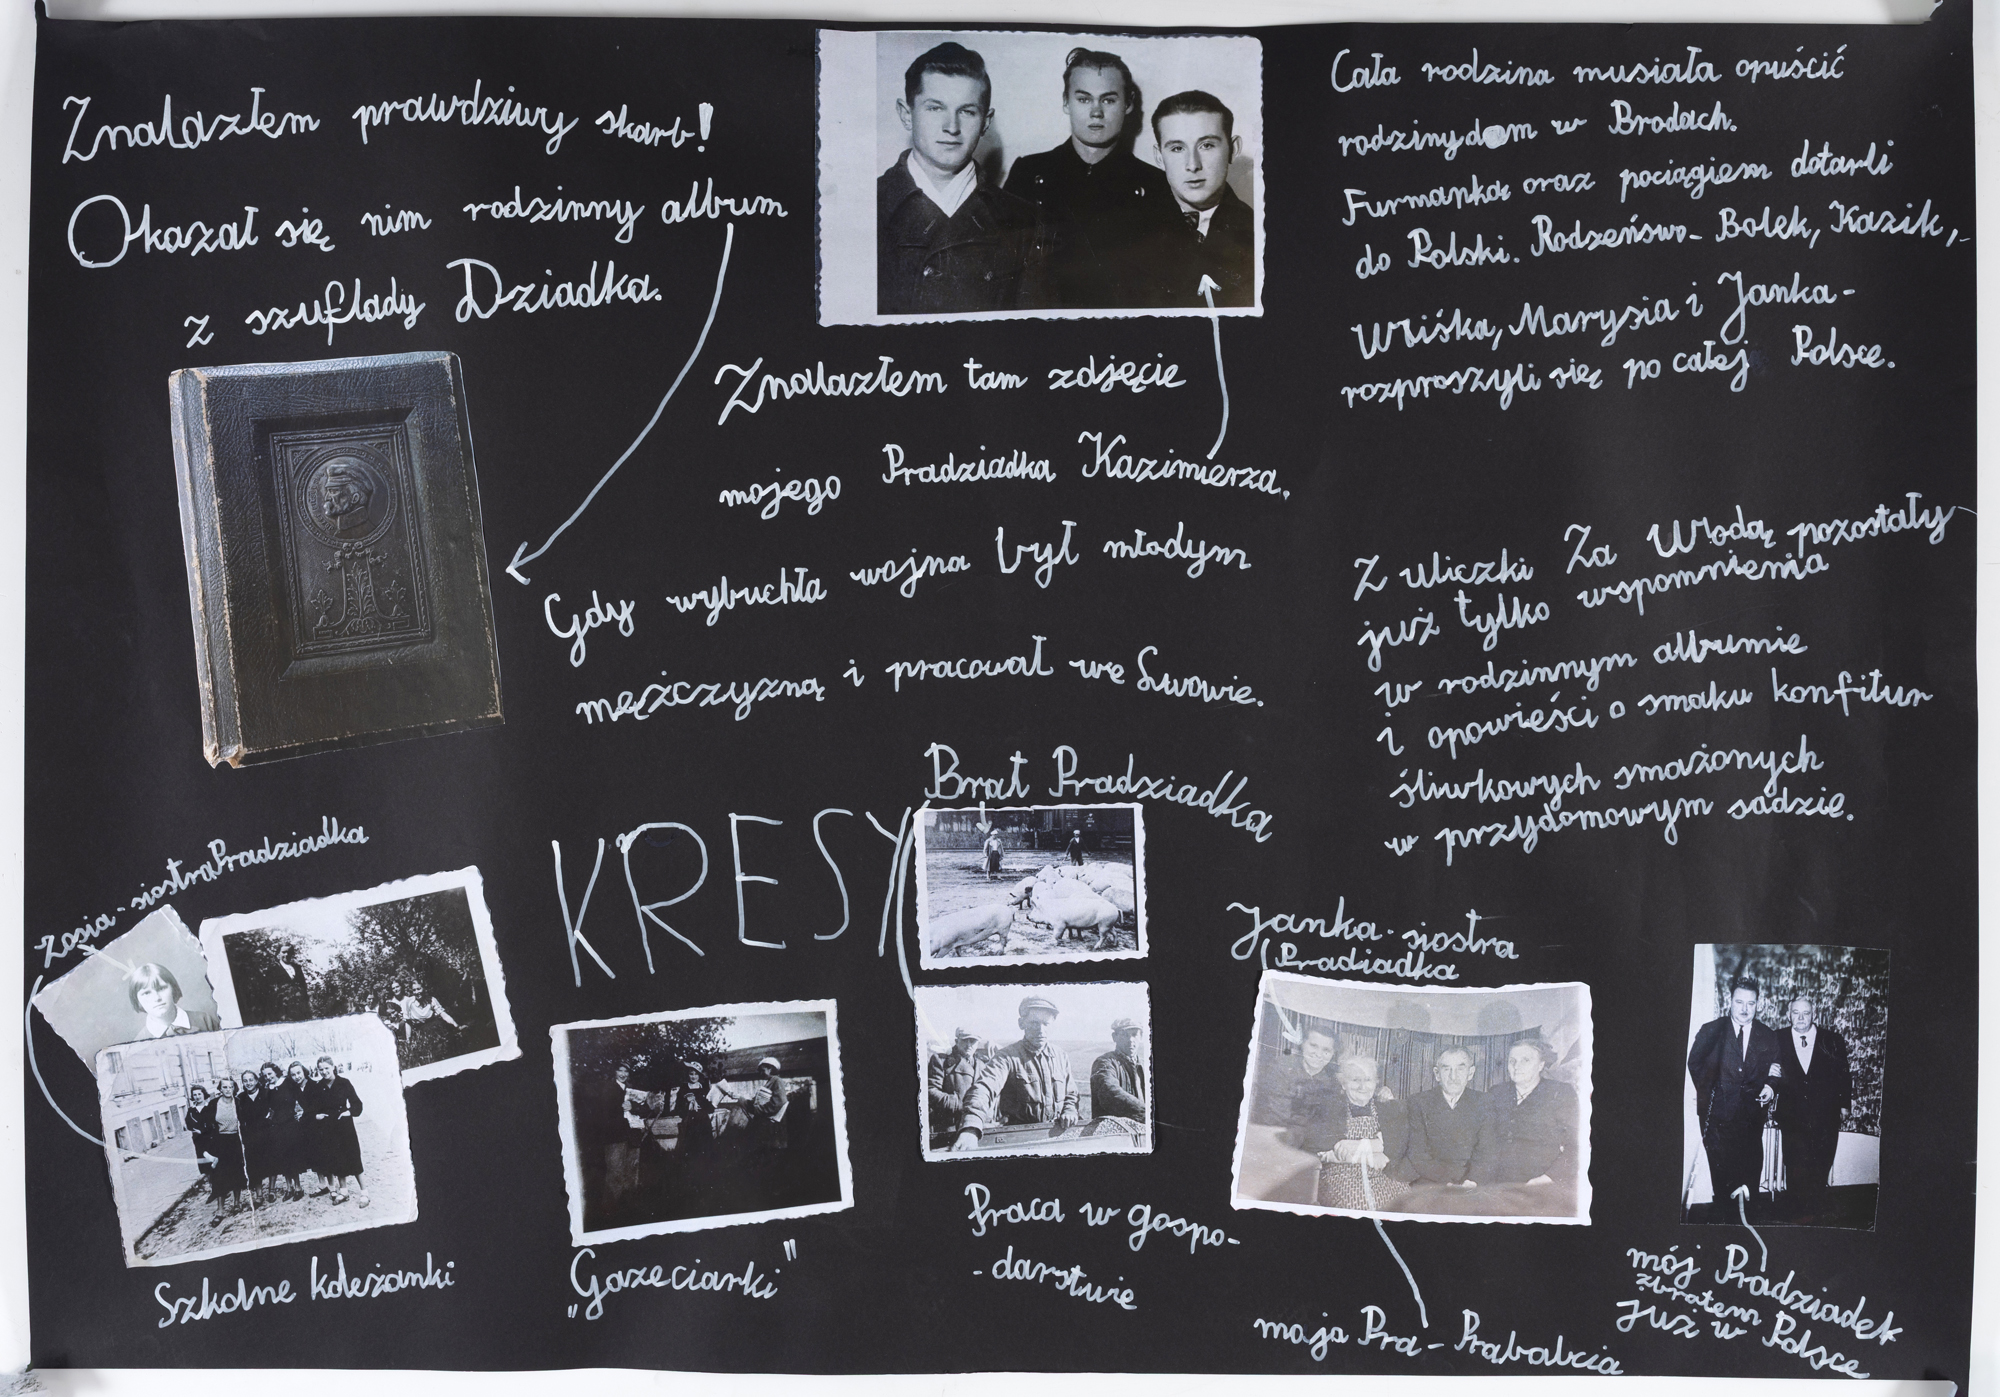 Znalazłem prawdziwy skarb!
Okazał się nim rodzinny album
z szuflady Dziadka.
Znalazłem tam zdjęcie
mojego Pradziadka Kazimierza.
Gdy wybuchła wojna był młodym
mężczyzną i pracował we Lwowie.
Cała rodzina musiała opuścić
rodziny dom w Brodach.
Furmanką oraz pociągiem dotarli
do Polski. Rodzeństwo - Bolek, Kazik,
Wiśka, Marysia i Janka -
rozproszyli się po całej Polsce.
Z uliczki Za Wodą pozostały
już tylko wspomnienia
w rodzinnym albumie
i opowieści o smaku konfitur
śliwkowych smażonych
w przydomowym sadzie.
KRESY
Zosia - siostra Pradziadka
Szkolne koleżanki
„Gazeciarki"
Brat Pradziadka
Praca w gospo-
- darstwie
Janka - siostra
Pradiadka
moja Pra - Prababcia
mój Pradziadek
z bratem
już w Polsce